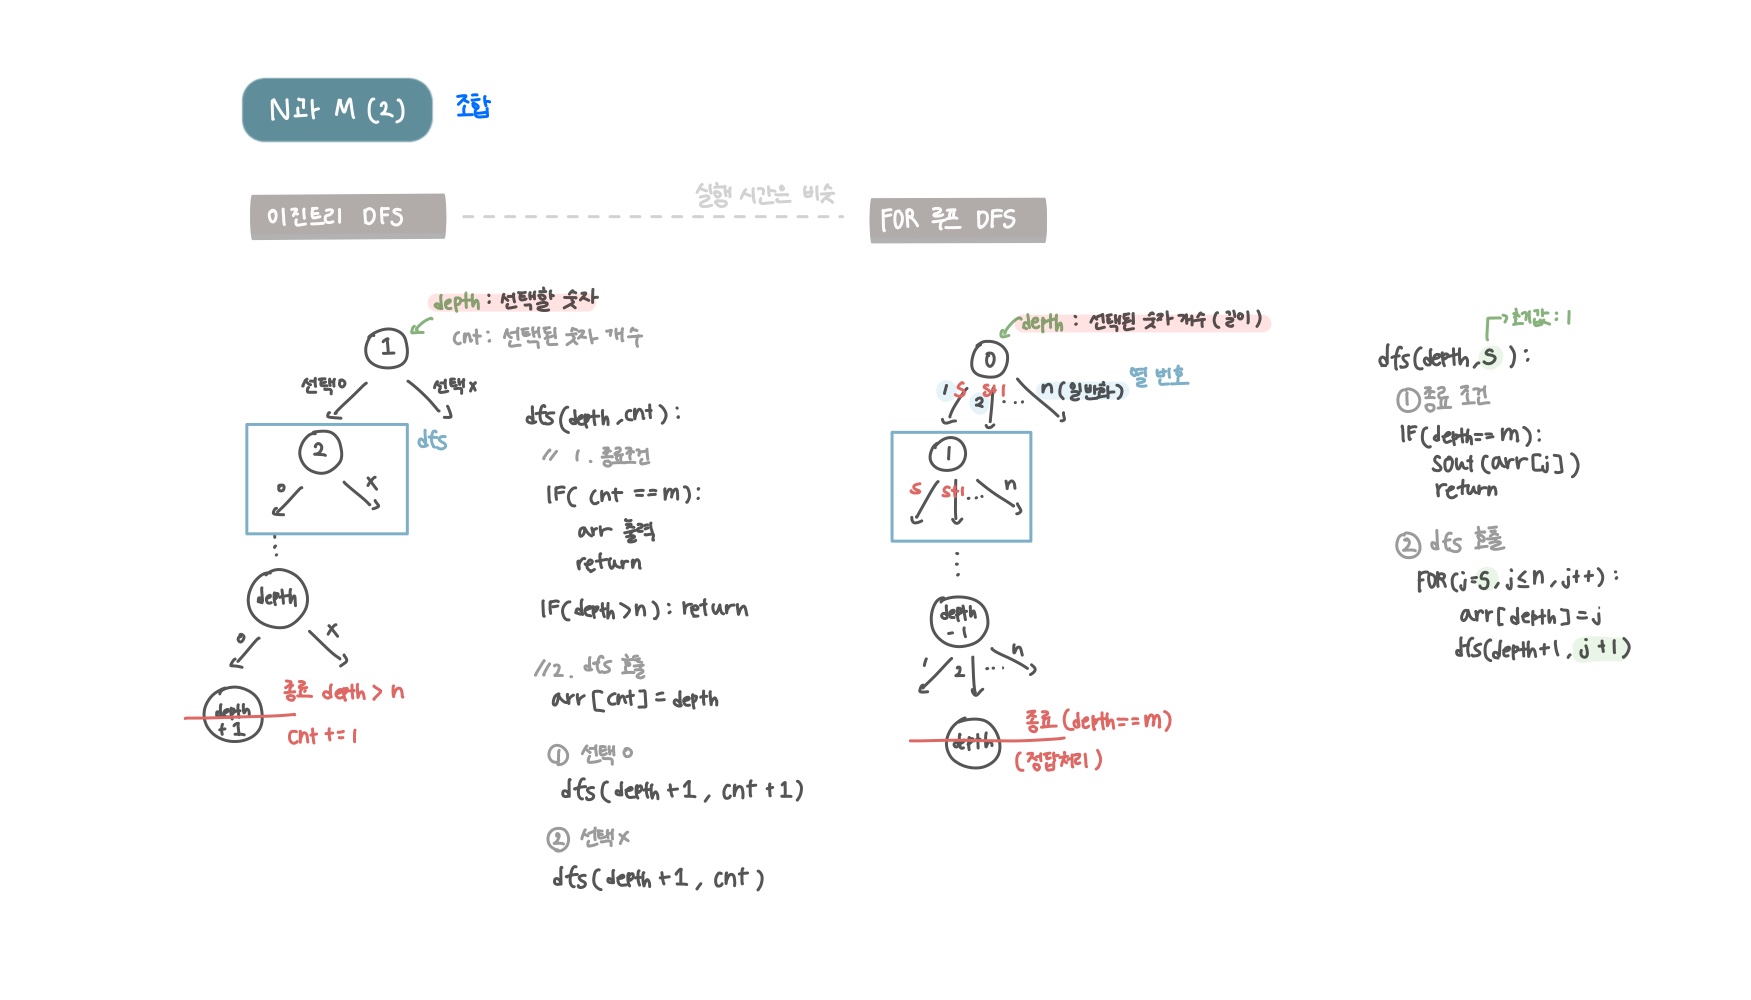 N과 M (2)
조합
이진트리 DFS
실행 시간은 비슷
FOR 루프 DFS
depth : 선택할 숫자
cnt : 선택된 숫자 개수
1
선택o
선택x
dfs
2
o
x
depth
o
x
depth
+1
종료 depth > n
cnt += 1
dfs(depth, cnt) :
// 1. 종료조건
IF( cnt == m) :
arr 출력
return
IF(depth > n) : return
//2. dfs 호출
arr [cnt] = depth
① 선택 o
dfs(depth +1 , cnt +1)
② 선택 x
dfs(depth +1 , cnt )
depth : 선택된 숫자 개수 (길이)
0
1 s s+1
2 ... n (일반화)
열 번호
1
s s+1 ... n
depth
-1
1 2 ... n
depth
종료 (depth == m)
(정답처리)
초기값 : 1
dfs(depth, s ) :
① 종료 조건
IF(depth == m) :
sout (arr [j] )
return
② dfs 호출
FOR (j=s, j≤n, j++) :
arr [depth] = j
dfs(depth+1, j+1)